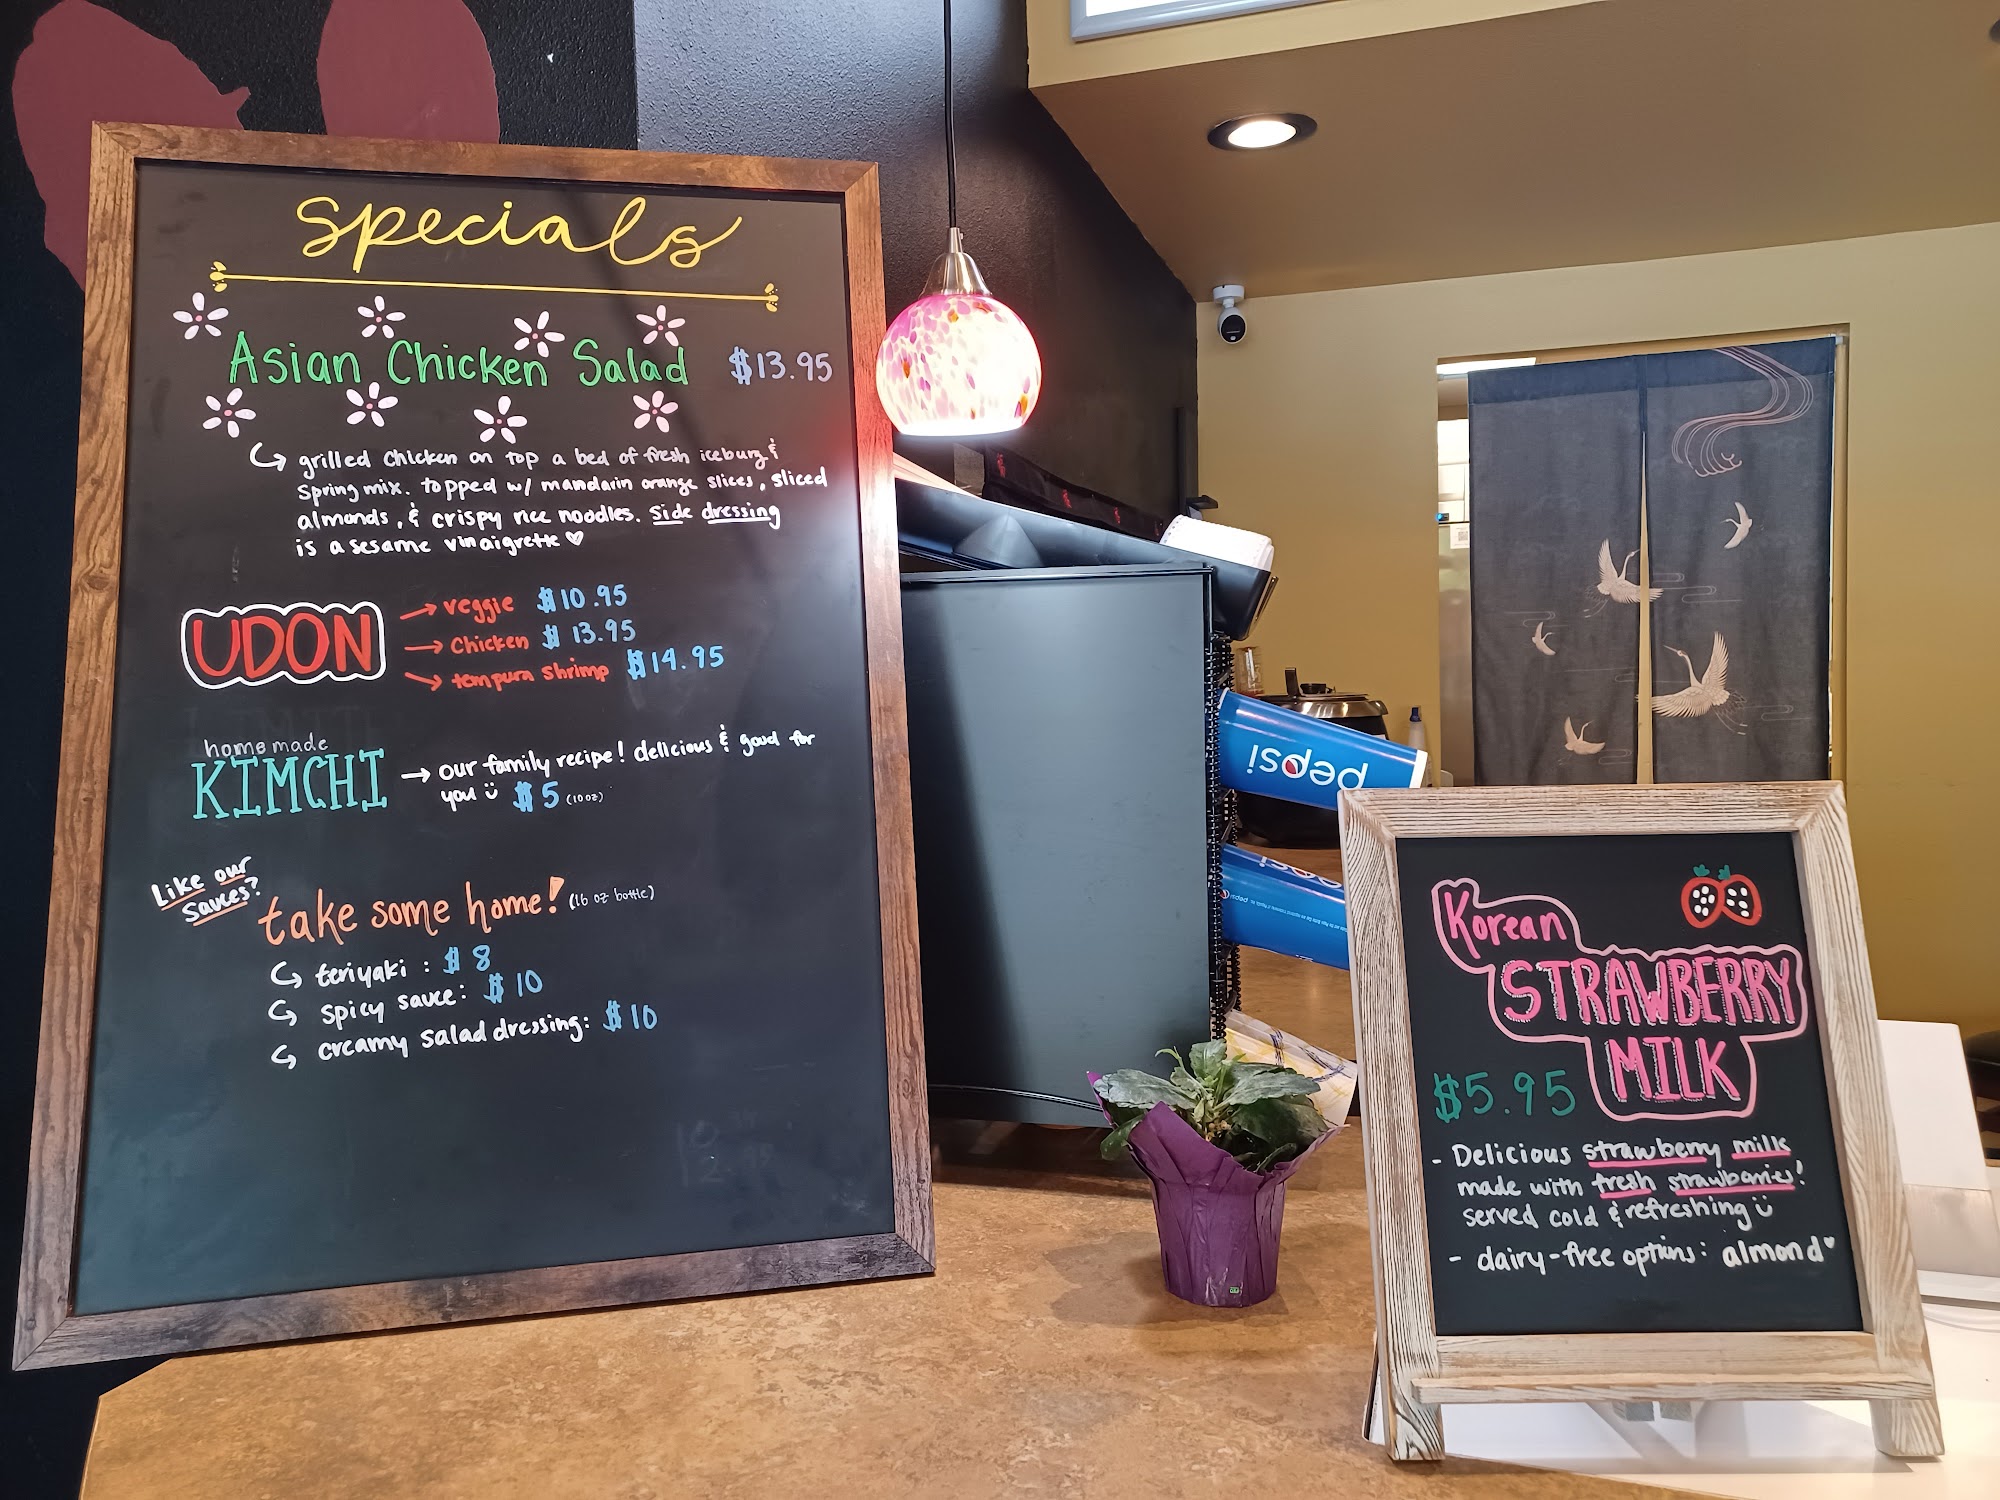 specials
Asian Chicken Salad $13.95
grilled chicken on top a bed of fresh iceburg &
spring mix. topped w/ mandarin orange slices, sliced
almonds, & crispy rice noodles. side dressing
is a sesame vinaigrette ♡
UDON
→ veggie $10.95
→ chicken $13.95
→ tempura shrimp $14.95
homemade
KIMCHI
→ our family recipe! delicious & good for
you ü $5 (10oz)
Like our
sauces?
take some home! (16 oz bottle)
teriyaki : $8
spicy sauce: $10
creamy salad dressing: $10
pepsi
pepsi
Korean
STRAWBERRY
MILK
$5.95
- Delicious strawberry milk
made with fresh strawberries!
served cold & refreshing ü
- dairy-free options: almond ♥